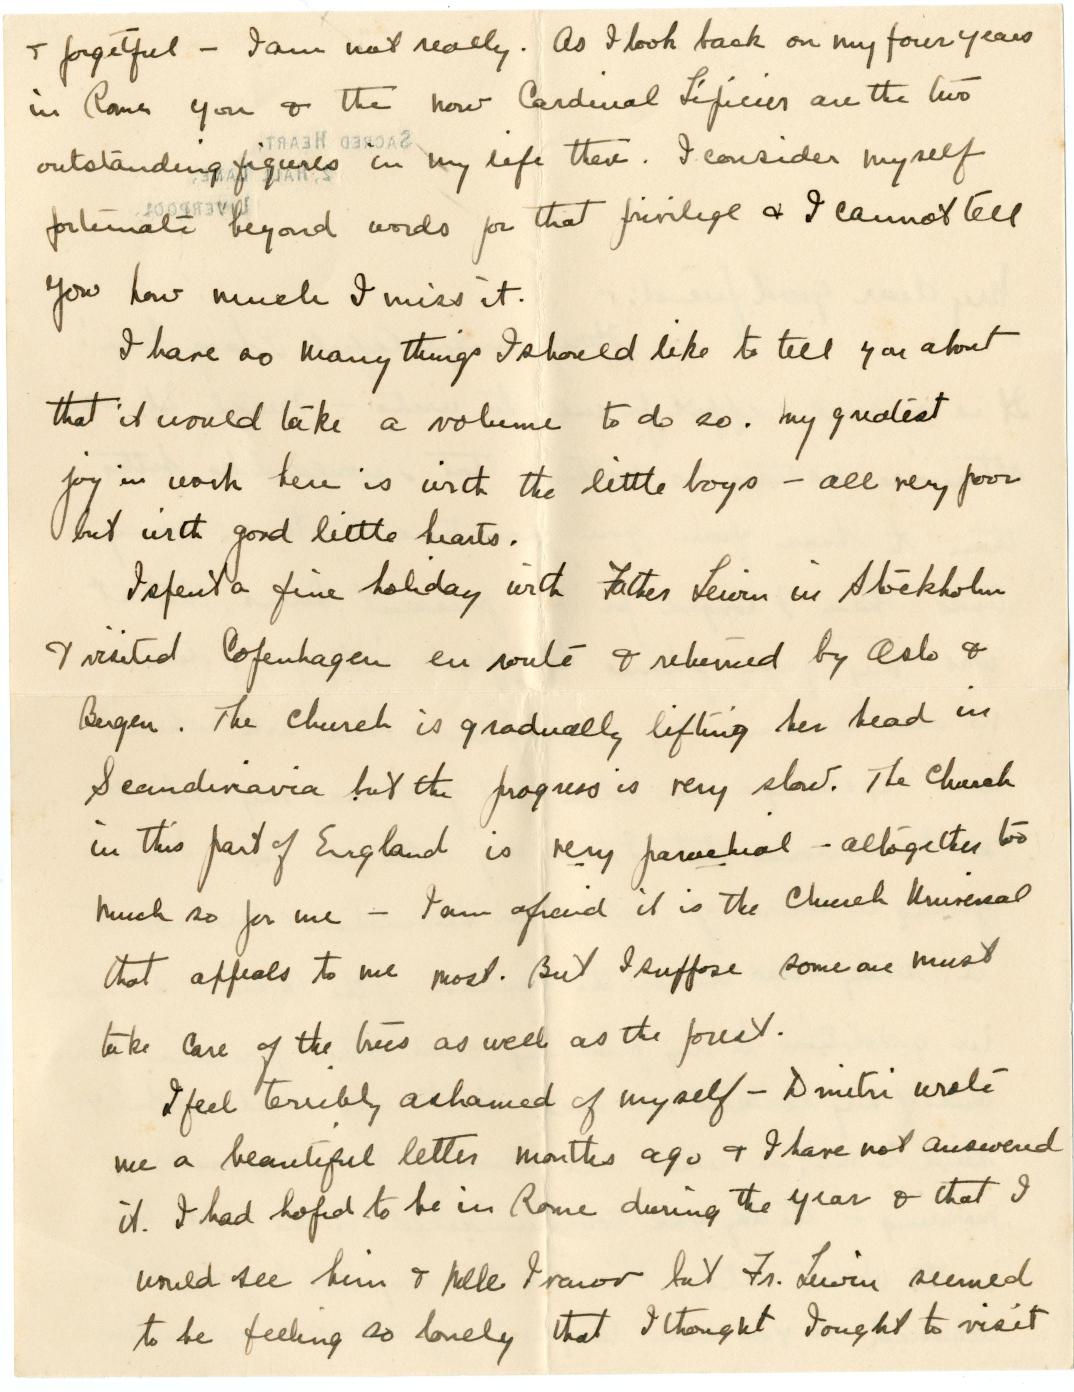 & forgetful – I am not really. As I look back on my four years
in Rome you & the now Cardinal Lépicier are the two
outstanding figures in my life there. I consider myself
fortunate beyond words for that privilege & I cannot tell
you how much I miss it.
I have so many things I should like to tell you about
that it would take a volume to do so. My greatest
joy in work here is with the little boys – all very poor
but with good little hearts.
I spent a fine holiday with Father Lewin in Stockholm
& visited Copenhagen en route & returned by Oslo &
Bergen. The Church is gradually lifting her head in
Scandinavia but the progress is very slow. The Church
in this part of England is very parochial – altogether too
much so for me – I am afraid it is the Church Universal
that appeals to me most. But I suppose someone must
take care of the trees as well as the forest.
I feel terribly ashamed of myself – Dmitri wrote
me a beautiful letter months ago & I have not answered
it. I had hoped to be in Rome during the year & that I
would see him & Melle Ivanov but Fr. Lewin seemed
to be feeling so lonely that I thought I ought to visit
SACRED HEART,
2, HALL LANE,
LIVERPOOL.